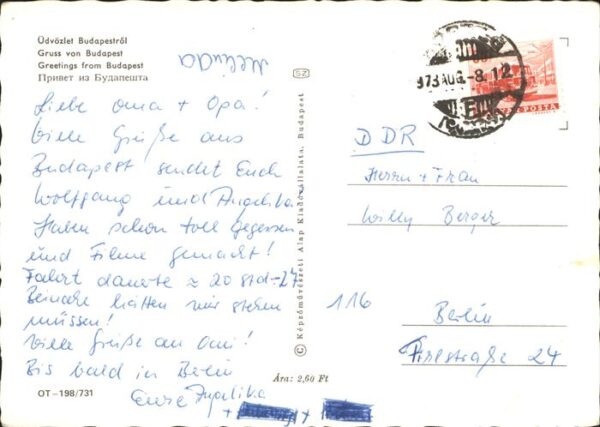 Üdvözlet Budapestről
Gruss von Budapest
Greetings from Budapest
Привет из Будапешта
Melinda
Liebe Oma + Opa!
Viele Grüße aus
Budapest sendet Euch
Wolfgang und Angelika.
Haben schon toll gegessen
und Filme gemacht!
Fahrt dauerte ≈ 20 Std
Beinahe hätten wir stehen
müssen!
Viele Grüße an Omi!
Bis bald in Berlin
Eure Angelika
+
OT-198/731
SZ
© Képzőművészeti Alap Kiadóvállalata, Budapest
Ára: 2,60 Ft
973 AUG.-8. 12
POSTA
DDR
Herrn + Frau
Willy Berger
116
Berlin
24